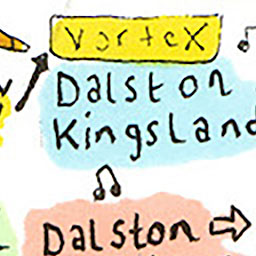 Vortex
Dalston
Kingsland
Dalston